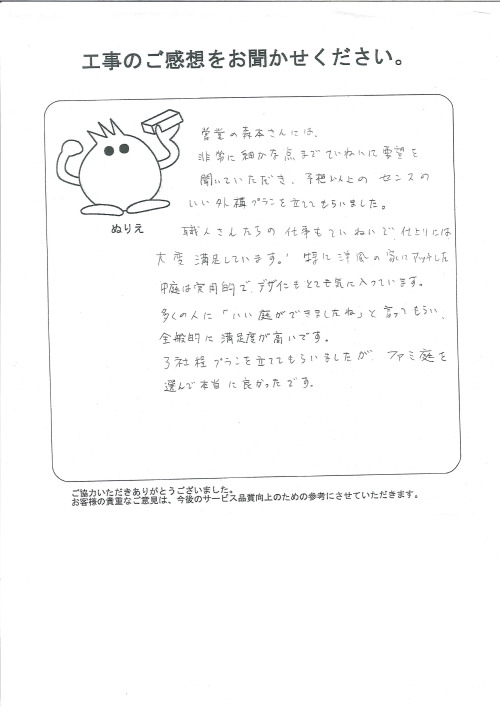 工事のご感想をお聞かせください。
営業の森本さんには、
非常に細かな点までていねいに要望を
聞いていただき、予想以上の センスの
いい外構プランを立ててもらいました。
ぬりえ
職人さんたちの 仕事もていねいで、仕上りには
大変 満足しています。特に 洋風の 家にマッチした
中庭は実用的で、デザインもとても気に入っています。
多くの人に「いい 庭ができましたね」と 言ってもらい、
全般的に 満足度が高いです。
3社程プランを立ててもらいましたが、ファミ庭を
選んで本当に良かったです。
ご協力いただきありがとうございました。
お客様の貴重なご意見は、今後のサービス品質向上のための参考にさせていただきます。